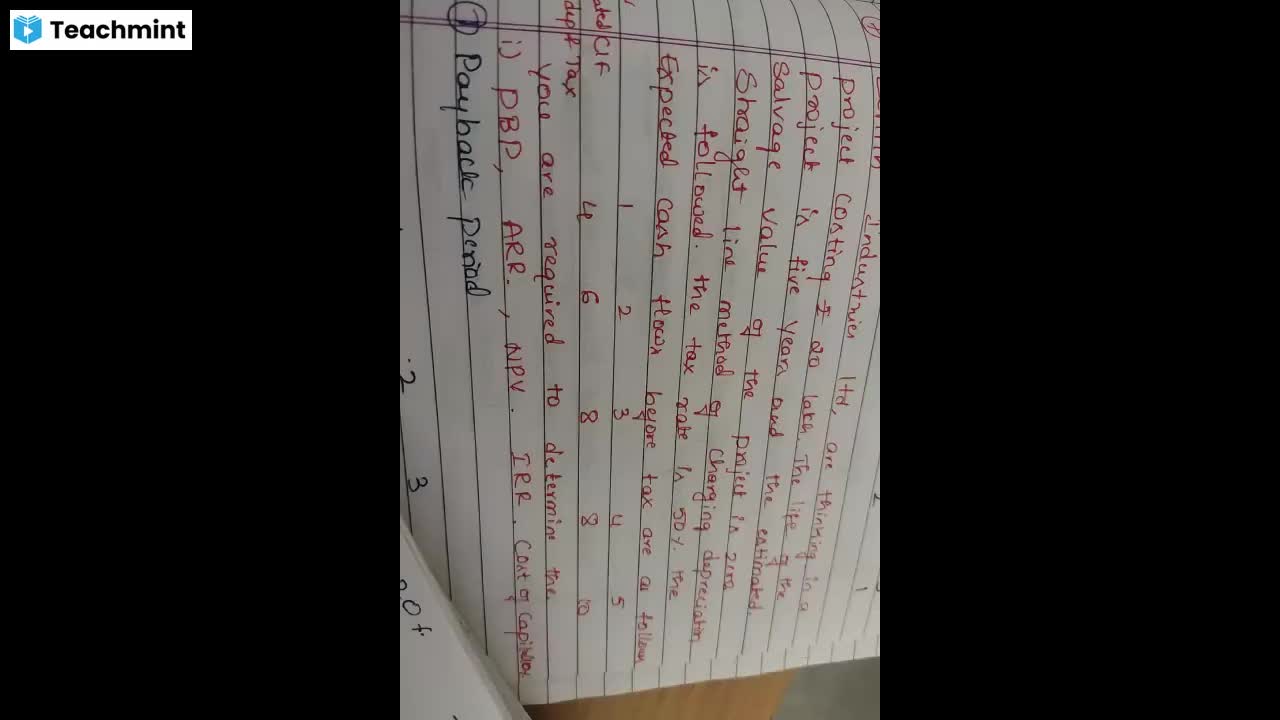 Teachmint
Industries ltd, are thinking in a
project costing ₹ 20 lakh. The life of the
project is five years and the estimated.
Salvage value of the project is zero
Straight line method of charging depreciation
is followed. the tax rate is 50%. the
Expected cash flows before tax are as follows
1 2 3 4 5
ated CIF 4 6 8 8 10
dep & Tax
you are required to determine the.
i) PBP, ARR., NPV. IRR. Cost of Capital 10%.
① Payback period
2 3